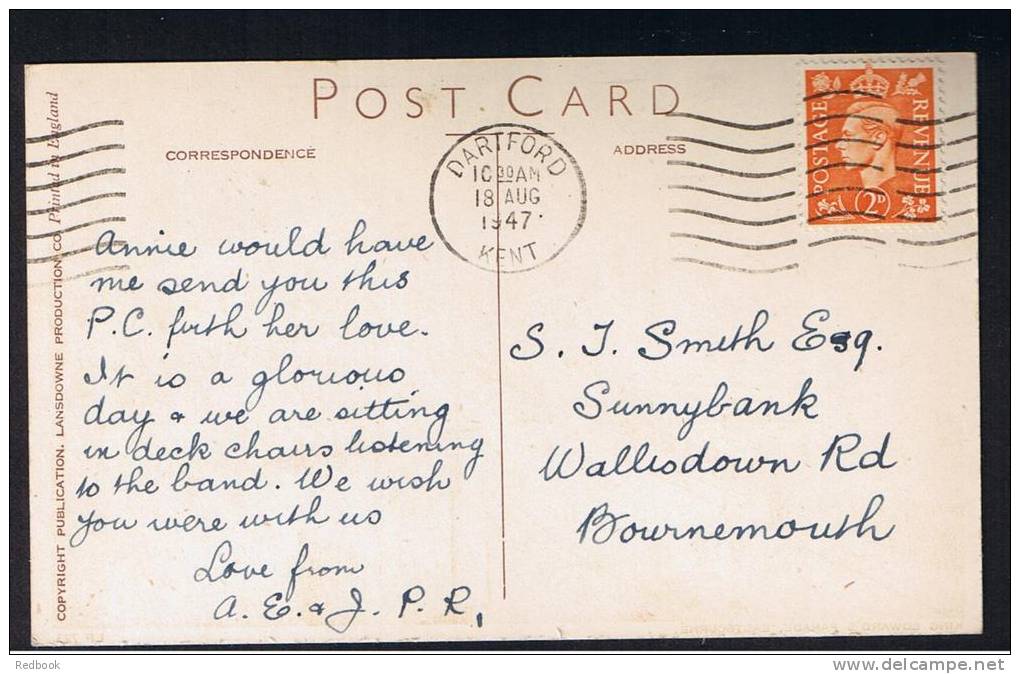 POST CARD
CORRESPONDENCE
ADDRESS
DARTFORD
10 30 AM
18 AUG
1947
KENT
POSTAGE
REVENUE
2D
COPYRIGHT PUBLICATION. LANSDOWNE PRODUCTION CO. Printed in England
Annie would have
me send you this
P.C. with her love.
It is a glorious
day & we are sitting
in deck chairs listening
to the band. We wish
you were with us
Love from
A. E. & J. P. R.
S. J. Smith Esq.
Sunnybank
Wallisdown Rd
Bournemouth
Redbook
www.delcampe.net